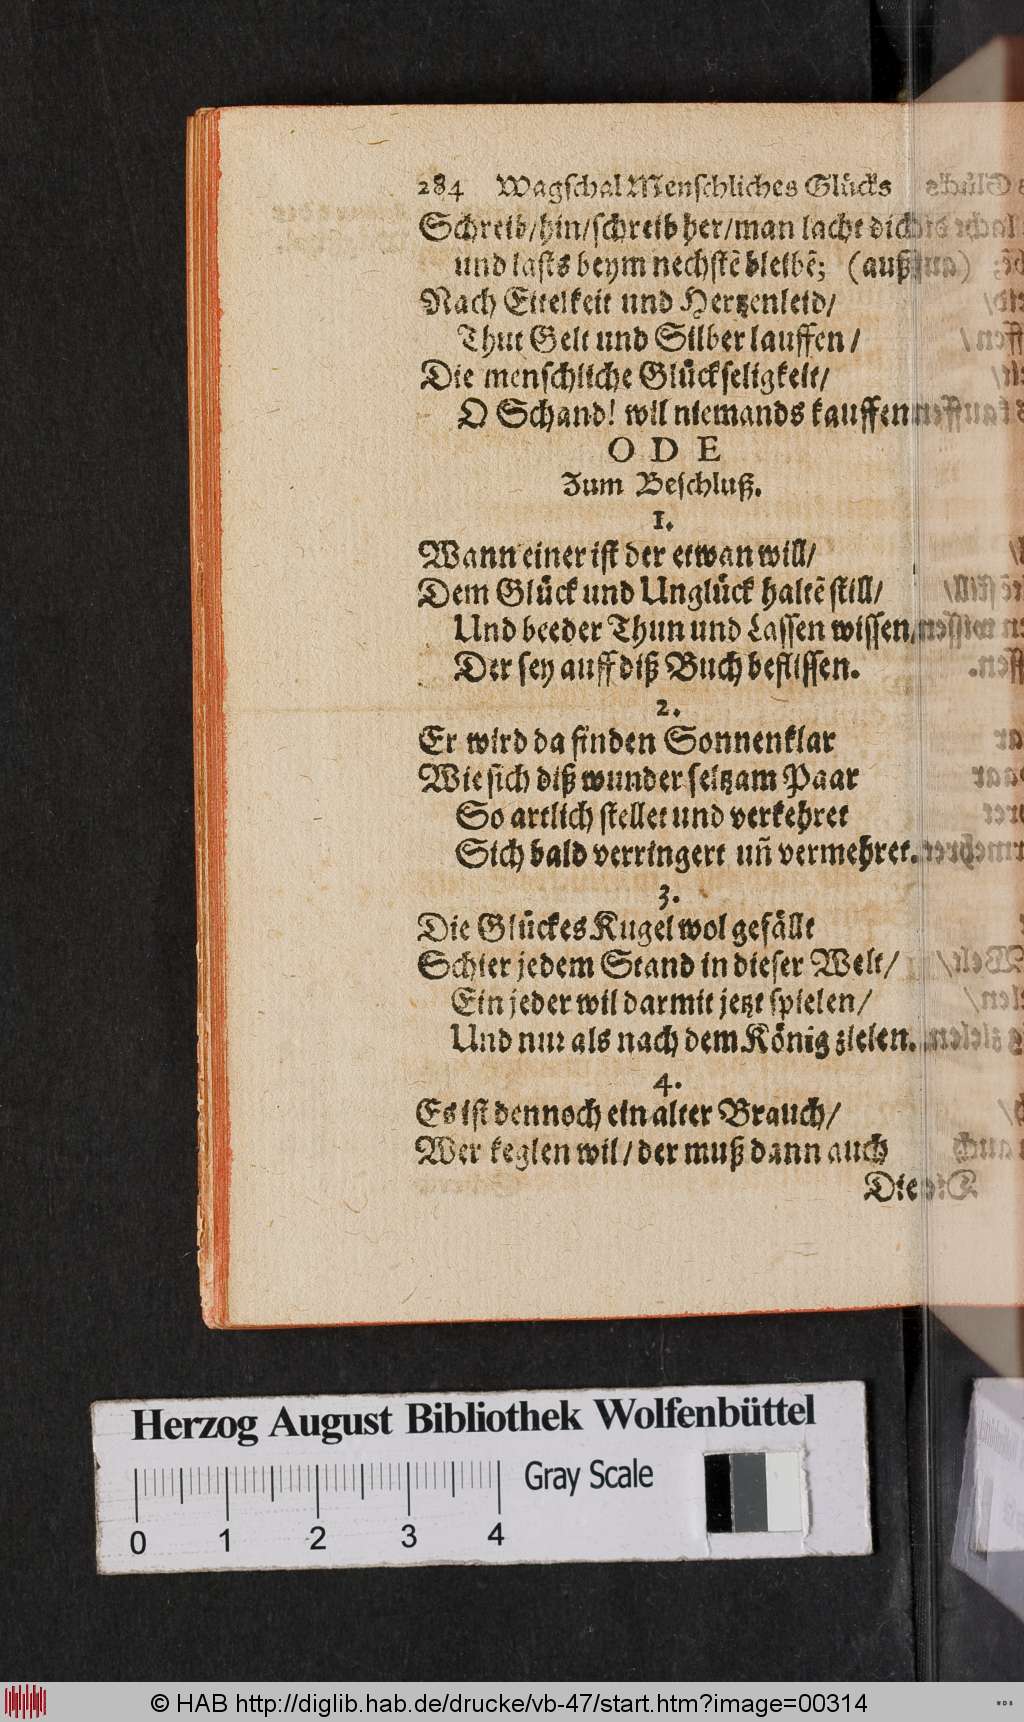 284 Wagschal Menschliches Glücks
Schreib/hin/schreib her/man lacht dich
und lasts beym nechstẽ bleibẽ; (auß
Nach Eitelkeit und Hertzenleid/
Thut Gelt und Silber lauffen/
Die menschliche Glückseligkeit/
O Schand! wil niemands kauffen
ODE
Zum Beschluß.
1.
Wann einer ist der etwan will/
Dem Glück und Unglück haltẽ still/
Und beeder Thun und Lassen wissen/
Der sey auff diß Buch beflissen.
2.
Er wird da finden Sonnenklar
Wie sich diß wunder seltzam Paar
So artlich stellet und verkehret
Sich bald verringert uñ vermehret.
3.
Die Glückes Kugel wol gefällt
Schier jedem Stand in dieser Welt/
Ein jeder wil darmit jetzt spielen/
Und nur als nach dem König zielen.
4.
Es ist dennoch ein alter Brauch/
Wer keglen wil/der muß dann auch
Die
Herzog August Bibliothek Wolfenbüttel
Gray Scale
0 1 2 3 4
© HAB http://diglib.hab.de/drucke/vb-47/start.htm?image=00314
WDB